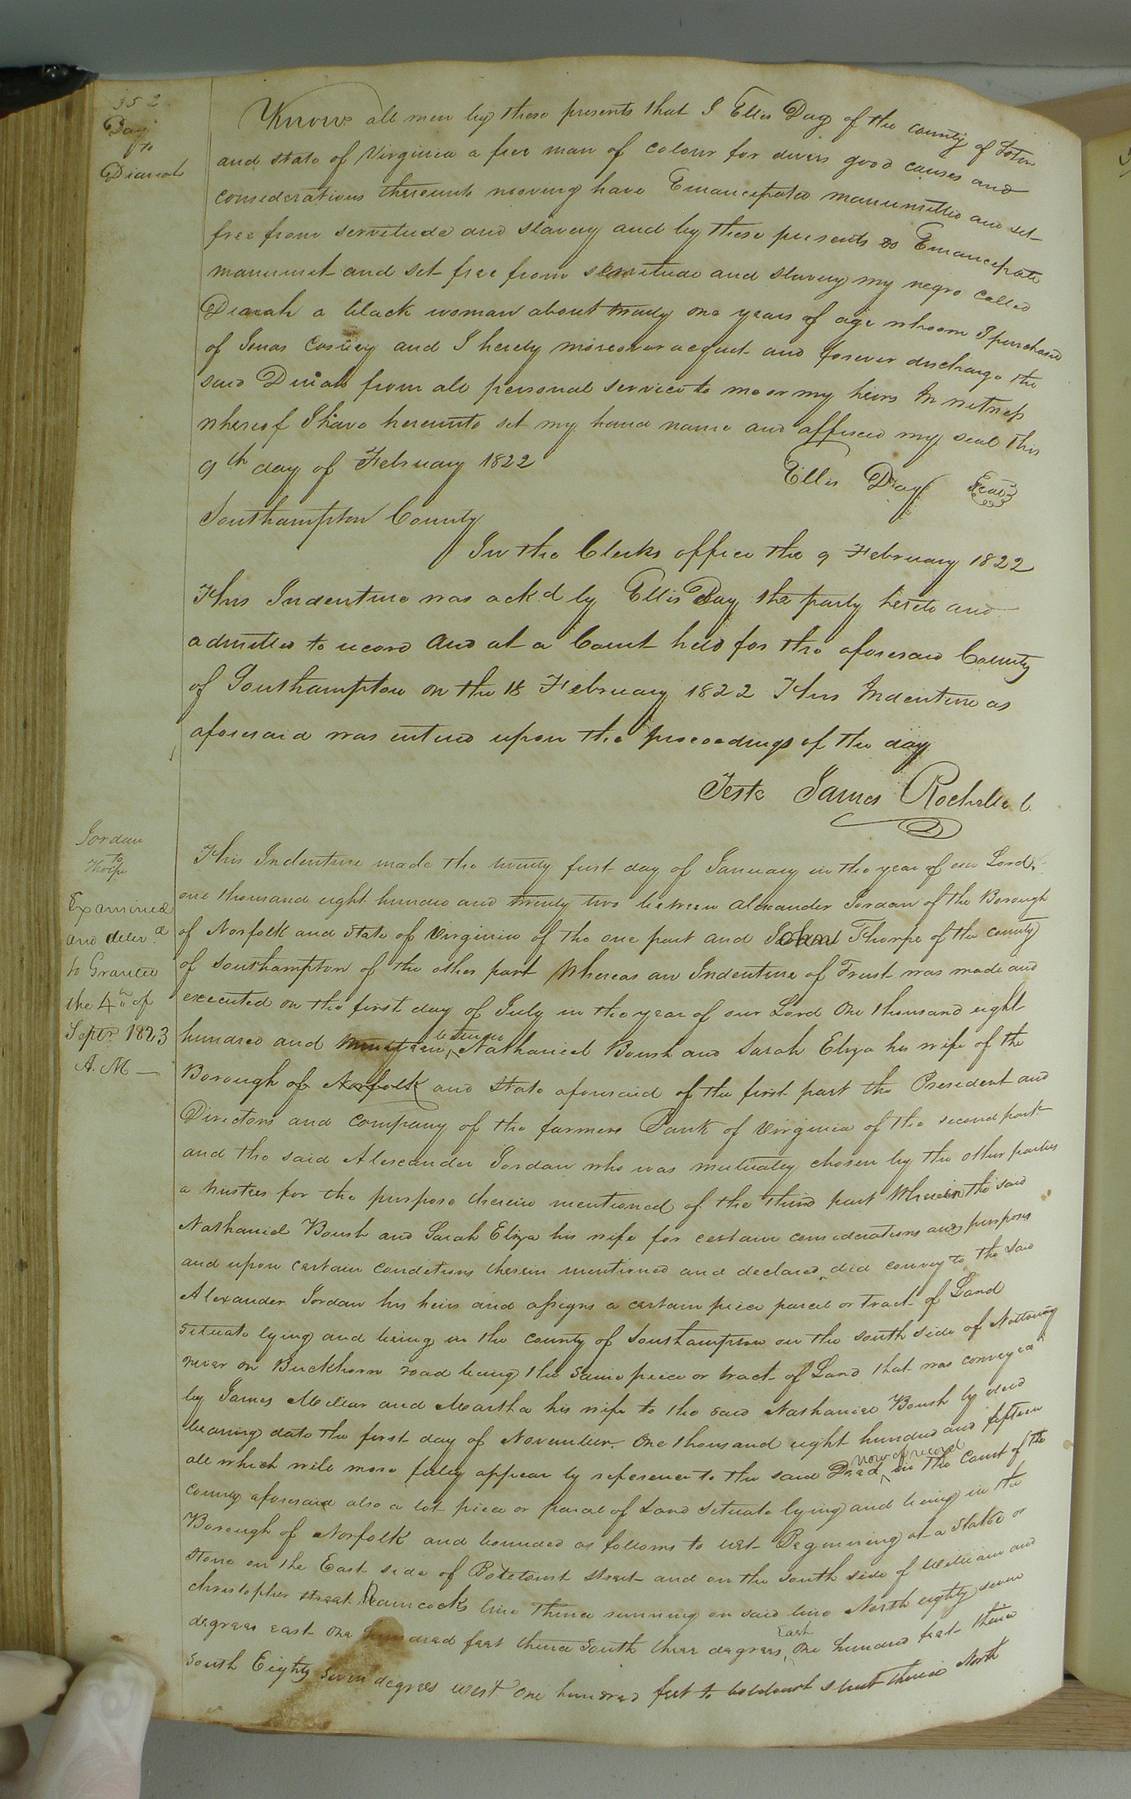 352
Day
to
Dianah
Know all men by these presents that I Ellis Day of the county of Soton
and state of Virginia a free man of colour for divers good causes and
considerations thereunto moving have Emancipated manumitted and set
free from servitude and slavery and by these presents do Emancipate
manumit and set free from servitude and slavery my negro called
Dianah a black woman about twenty one years of age whoom I purchased
of Jonas and I hereby moreover acquit and forever discharge the
said Dinah from all personal service to me or my heirs In witness
whereof I have hereunto set my hand name and affixed my seal this
9th day of February 1822
Ellis Day Seal
Southampton County
In the Clerks office the 9 February 1822
This Indenture was ackd by Ellis Day the party hereto and
admitted to record and at a Court held for the aforesaid County
of Southampton on the 18 February 1822 This Indenture as
aforesaid was entered upon the proceedings of the day
Teste James Rochelle C
Jordan
to
Thorpe
Examined
and deliv.d
to Grantee
the 4th of
Septr. 1823
A. M —
This Indenture made the twenty first day of January in the year of our Lord
one thousand eight hundred and twenty two between Alexander Jordan of the Borough
of Norfolk and State of Virginia of the one part and Thorpe of the county
of Southampton of the other part Whereas an Indenture of Trust was made and
executed on the first day of July in the year of our Lord One thousand eight
hundred and nineteen between Nathaniel Boush and Sarah Eliza his wife of the
Borough of Norfolk and State aforesaid of the first part the President and
Directors and Company of the farmers Bank of Virginia of the second part
and the said Alexander Jordan who was mutualey chosen by the other parties
a trustee for the purpose therein mentioned of the third part Wherein the said
Nathaniel Boush and Sarah Eliza his wife for certain considerations and purposes
and upon certain conditions therein mentioned and declared did convey to the said
Alexander Jordan his heirs and assigns a certain piece parcel or tract of Land
situate lying and being in the county of Southampton on the south side of Nottoway
river on Buckhorn road being the same piece or tract of Land that was conveyed
by James and Martha his wife to the said Nathaniel Boush by deed
bearing date the first day of November One thousand eight hundred and fifteen
all which will more fuley appear by reference to the said Deed now of record in the Court of the
County aforesaid also a lot piece or parcel of Land situate lying and being in the
Borough of Norfolk and bounded as follows to wit Beginning at a Stake or
stone on the East side of Botetourt street and on the south side of William and
Christopher street Hancocks line thence running on said line North eighty seven
degrees east one hundred feet thence south three degrees East one hundred feet thence
South Eighty seven degrees west one hundred feet to street thence North